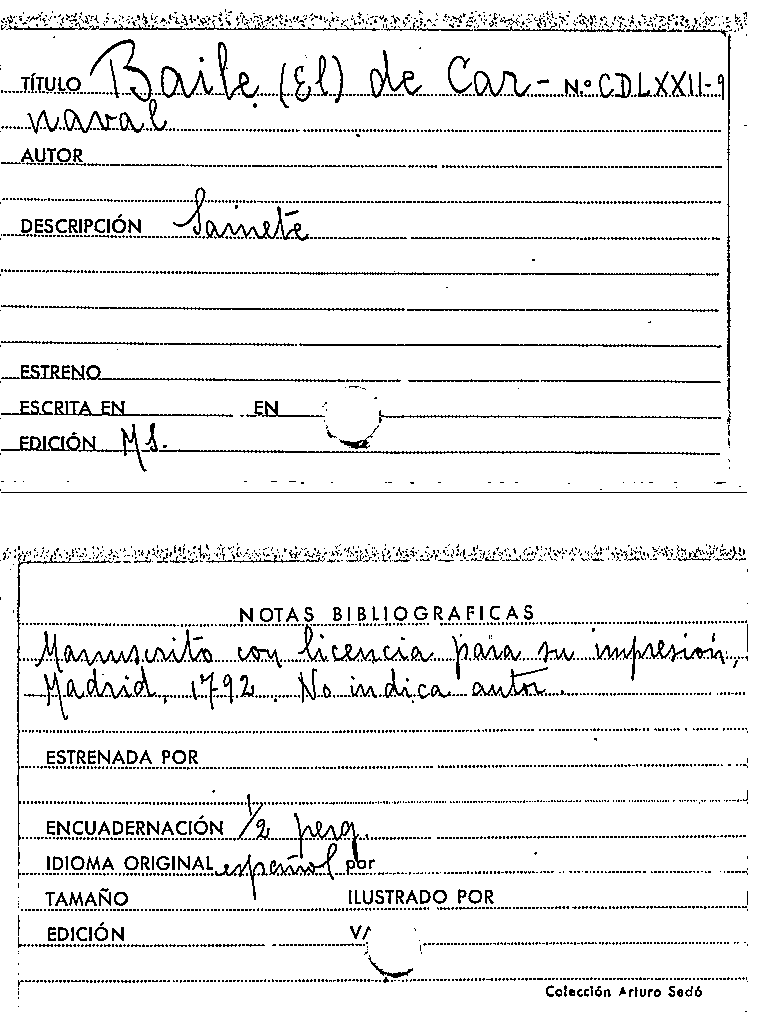 TÍTULO Baile (El) de Car- N.º CDLXXII-9
naval
AUTOR
DESCRIPCIÓN Sainete
ESTRENO
ESCRITA EN EN
EDICIÓN MS.
NOTAS BIBLIOGRAFICAS
Manuscrito con licencia para su impresión,
Madrid, 1792. No indica autor.
ESTRENADA POR
ENCUADERNACIÓN 1/2 perg.
IDIOMA ORIGINAL español por
TAMAÑO ILUSTRADO POR
EDICIÓN
Colección Arturo Sedó